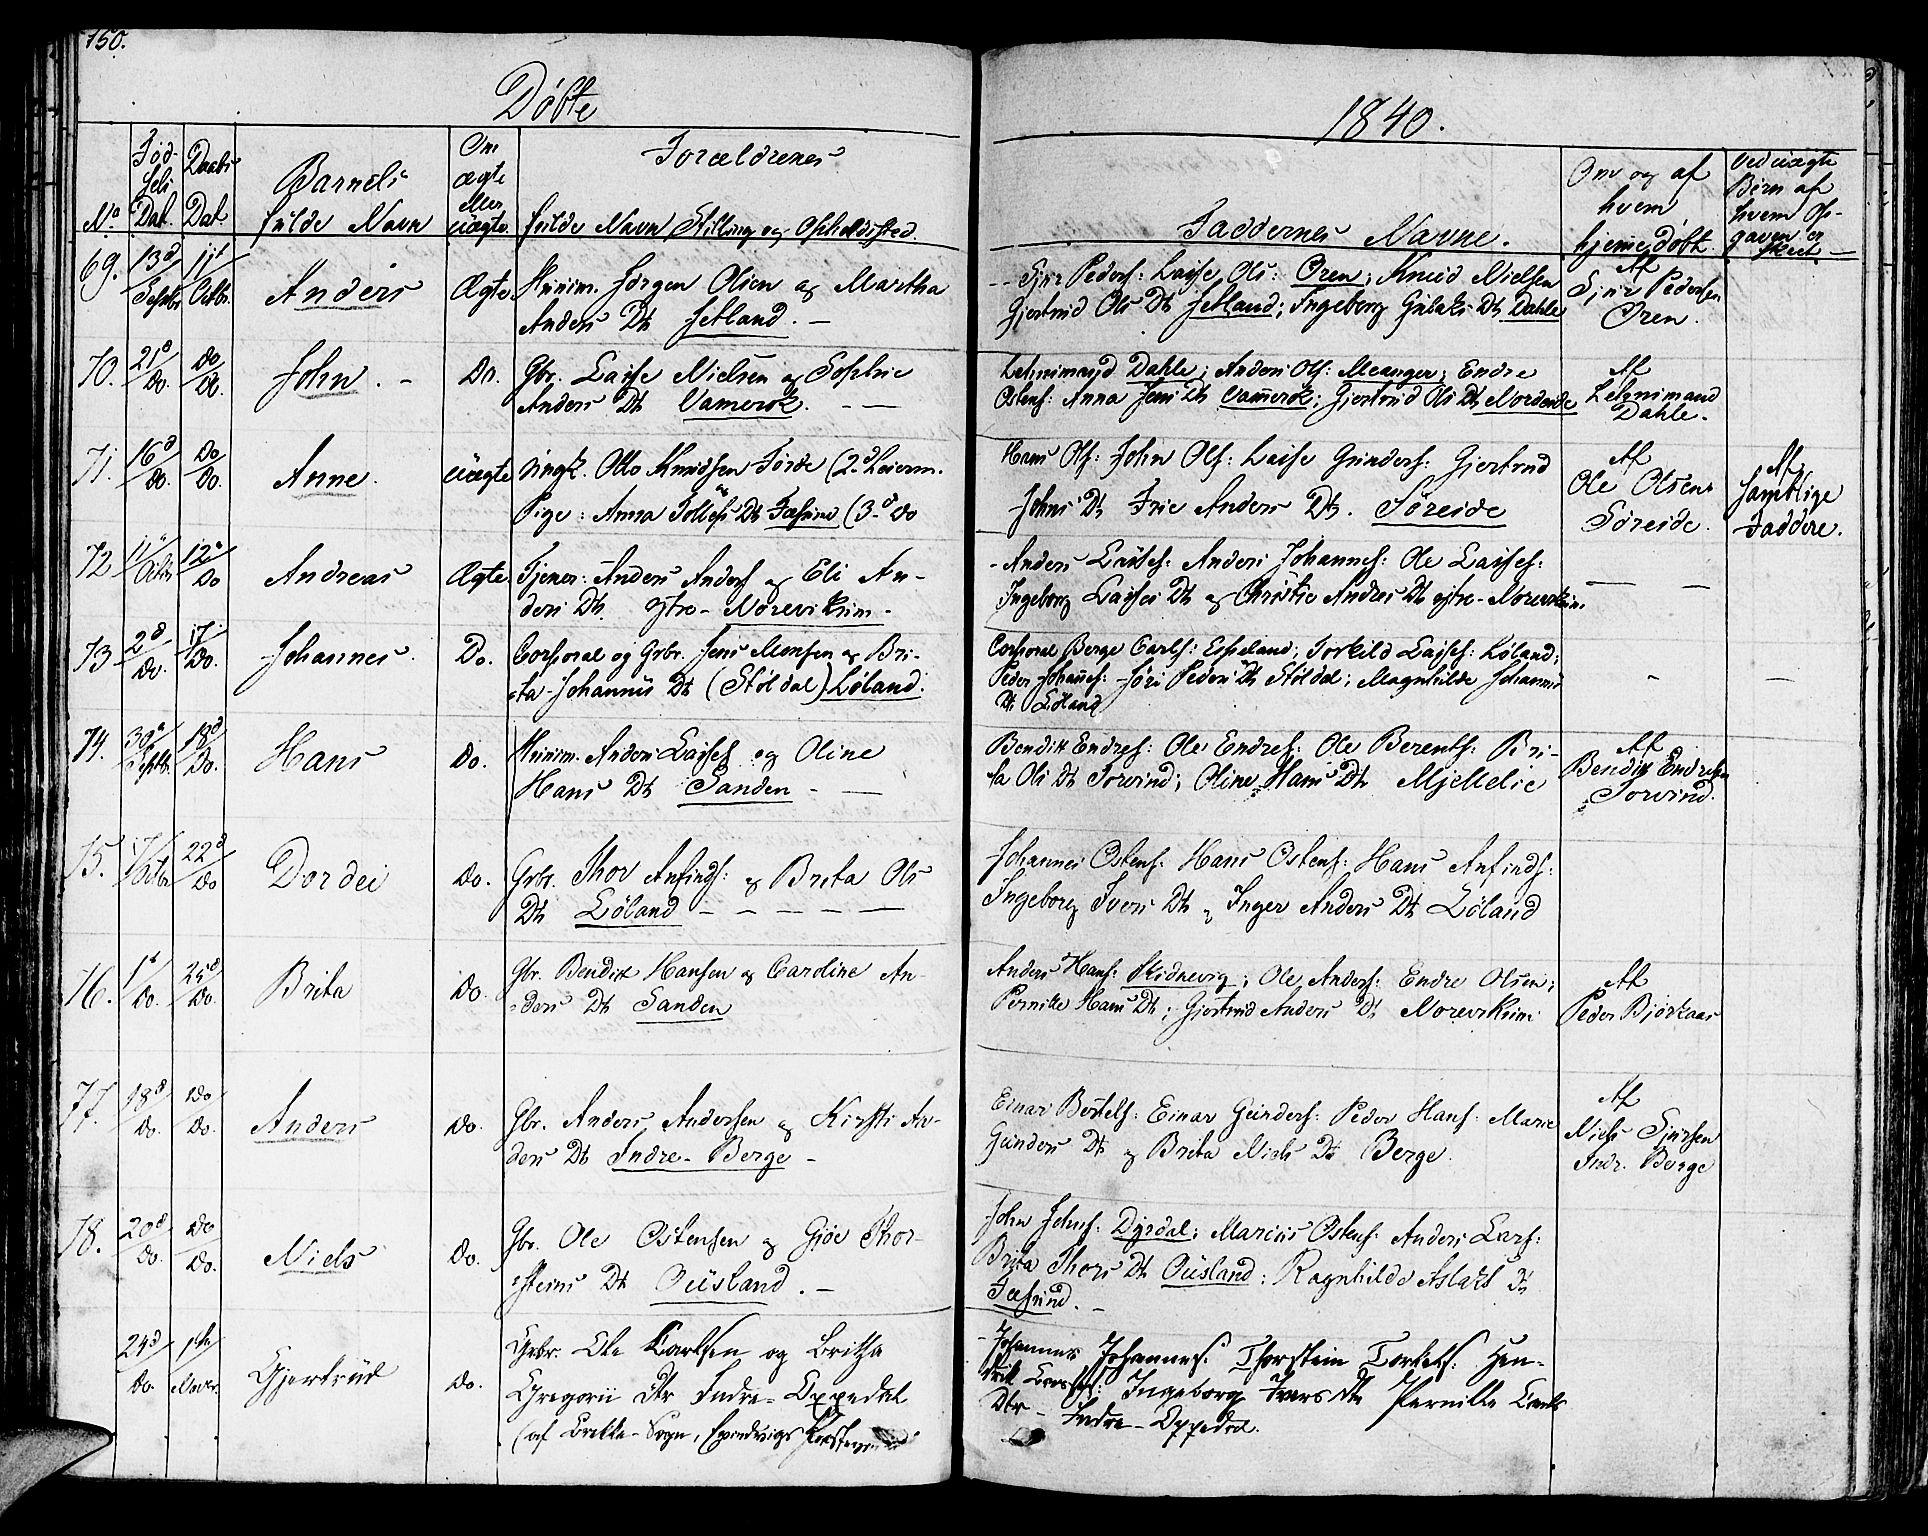 150.
Døbte
1840.
No
Fød-
sels
Dat.
Daabs
Dat
Barnets
fulde Navn
Om
ægte
eller
uægte.
Forældrenes
fulde Navn Stilling og Opholdsted.
Faddernes Navne.
Om og af
hvem
hjemedøbt.
Ved uægte
Børn af
hvem Op-
gaven er
skeet
69. 13d/Septbr 11t/Octbr. Anders Ægte. Huusm. Jørgen Olsen og Martha
Anders Dt Jetland. —
Peders: Lasse Ols: Oren; Knud Nielsen
Gjertrud Ols Dt Jetland; Ingeborg Dt Dahle
Af
Pedersen
Oren.
70. 21d/Do. Do/Do. John. - Do. Gbr. Lasse Nielsen og Sophie
Anders Dt Vamerok. - —
Lehnsmand Dahle; Anders Ols: Meanger; Endre
Ostens: Anna Jens Dt Vamerok; Gjertrud Ols Dt Nordeide
Af
Lehnsmand
Dahle.
71. 16d/Do. Do/Do. Anne. uægte Ungk. Otto Knudsen Førde (2d Leierm.
Pige: Anna Dt (3d Do
Hans Ols: John Ols: Lasse Gunders: Gjertrud
Johns Dt Anders Dt. Søreide
Af
Ole Olsen
Søreide.
Af
samtlige
Faddere.
72 11t/Octbr 12t/Do Andreas Ægte. Tjener: Anders Anders og Eli An-
ders Dt. ytre- Nørevikum-
- Anders Lasses: Anders Johannes: Ole Lasses:
Ingeborg Lasses Dt og Christie Andres Dt ytre-
73 2d/Do. 17/Do. Johannes. Do. Corporal og Gbr. Jens Monsen og Bri-
ta Johannis Dt (Støldal) Løland.
Corporal Berge Carls: Espeland; Torkild Lasses: Løland;
Peder Johanes: Peders Dt Støldal; Magnhilde Johannis
Dt Løland
74. 30t/Septb. 18d/Do. Hans Do. Huusm. Anders Lasses og Oline
Hans Dt Sanden - —
Bendik Endres: Ole Endres: Ole Berents: Bri-
ta Ols Dt Torvind; Oline Hans Dt Mjellelie
Af
Bendik Endresen
Torvind.
75. 17/Octbr 22d/Do Dordei Do. Grbr. Thor Anfinds: og Brita Ols
Dt Løland — — — — —
Johannes Ostens: Hans Ostens: Hans Anfinds:
Ingeborg Ivers Dt og Inger Anders Dt Løland
76. 1t/Do. 25d/Do. Brita Do. Gbr. Bendik Hansen og Caroline An-
ders Dt Sanden
Anders Hans: Skidnevig; Ole Anders: Endre Olsen;
Pernille Hans Dt; Gjertrud Anders Dt
Af
Peder Bjørkaas
77. 18d/Do. Do/Do. Anders Do. Gbr. Anders Andersen og Kirsti An-
ders Dt Indre- Berge -
Einar Bertels: Einar Gunders: Peder Hans: Marie
Gunders Dt og Brita Niels Dt Berge.
Af
Niels
Indr. Berge
78. 20d/Do. Do/Do. Niels Do. Gbr. Ole Ostensen og Gjøe Thor-
steins Dt Ousland. —
John Johns: Dyrdal; Marcus Ostens: Anders Lars:
Brita Thors Dt Ousland: Ragnhilde Aslaks Dt

24d/Do. 1ste/Novbr. Gjertrud Do. Grbr. Ole Karlsen og Britha
Gregorii Dtr Indre- Oppedal
(af Sogn,
- Johannes Johannes: Thorstein Torkels: Hen-
drik Ingeborg Ivers Dtr Pernille
Dtr - Indre- Oppedal.